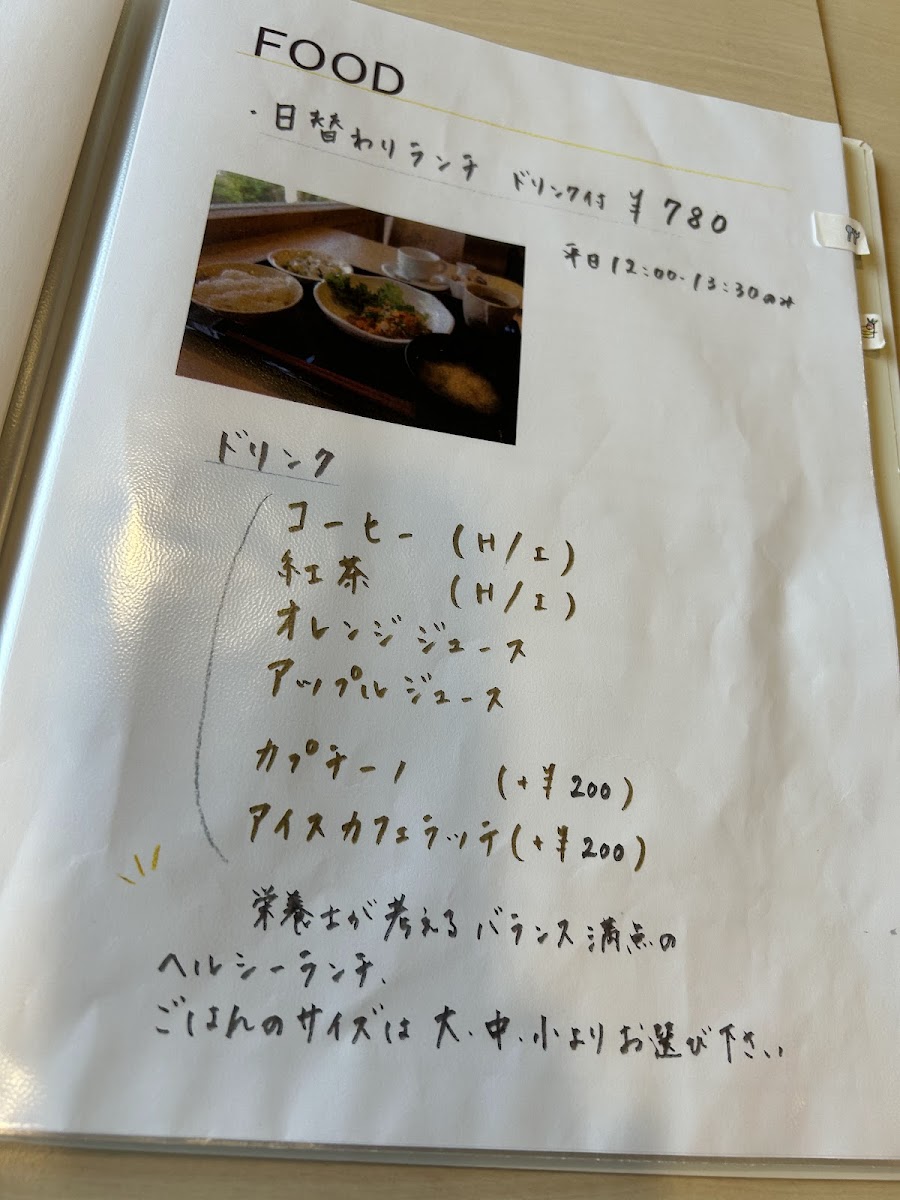 FOOD
・日替わりランチ ドリンク付 ¥780
平日12:00-13:30のみ
ドリンク
コーヒー (H/I)
紅茶 (H/I)
オレンジジュース
アップルジュース
カプチーノ (+¥200)
アイスカフェラッテ(+¥200)
栄養士が考えるバランス満点の
ヘルシーランチ、
ごはんのサイズは 大、中、小よりお選び下さい